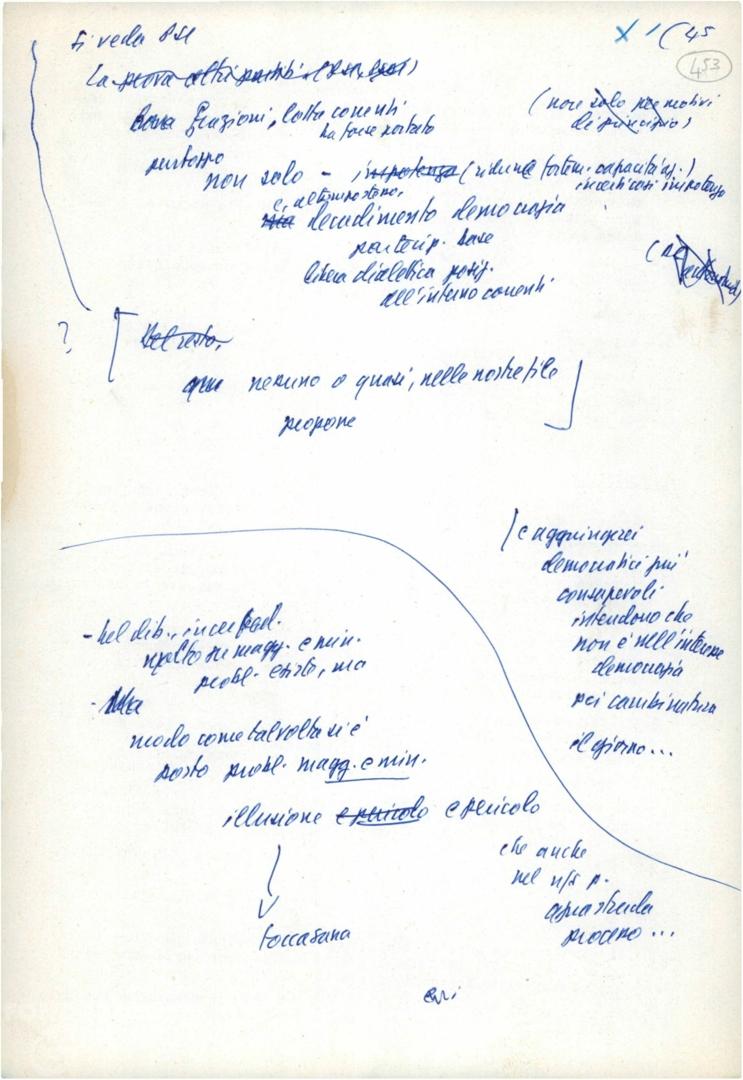 X 1 (45
453
Si veda PSI
La prova altri partiti (PSI,
frazioni, lotta correnti
ha forse portato
(non solo per motivi
di principio)
purtroppo
non solo - impotenza (riduce fortem. capacità
in certi casi impotenza
e, al tempo stesso,
Ma decadimento democrazia
partecip. base
libera dialettica posiz.
all'interno correnti
?
Del resto,
nessuno o quasi, nelle nostre file
propone
/ e aggiungerei
democratici più
consapevoli
intendono che
non è nell'interesse
democrazia
poi cambi natura
il giorno...
- nel dib.,
risolto su magg. e min.
probl. esiste, ma
- Ma
modo come talvolta si è
posto probl. magg. e min.
illusione e pericolo e pericolo
toccasana
che anche
nel ns p.
processo...